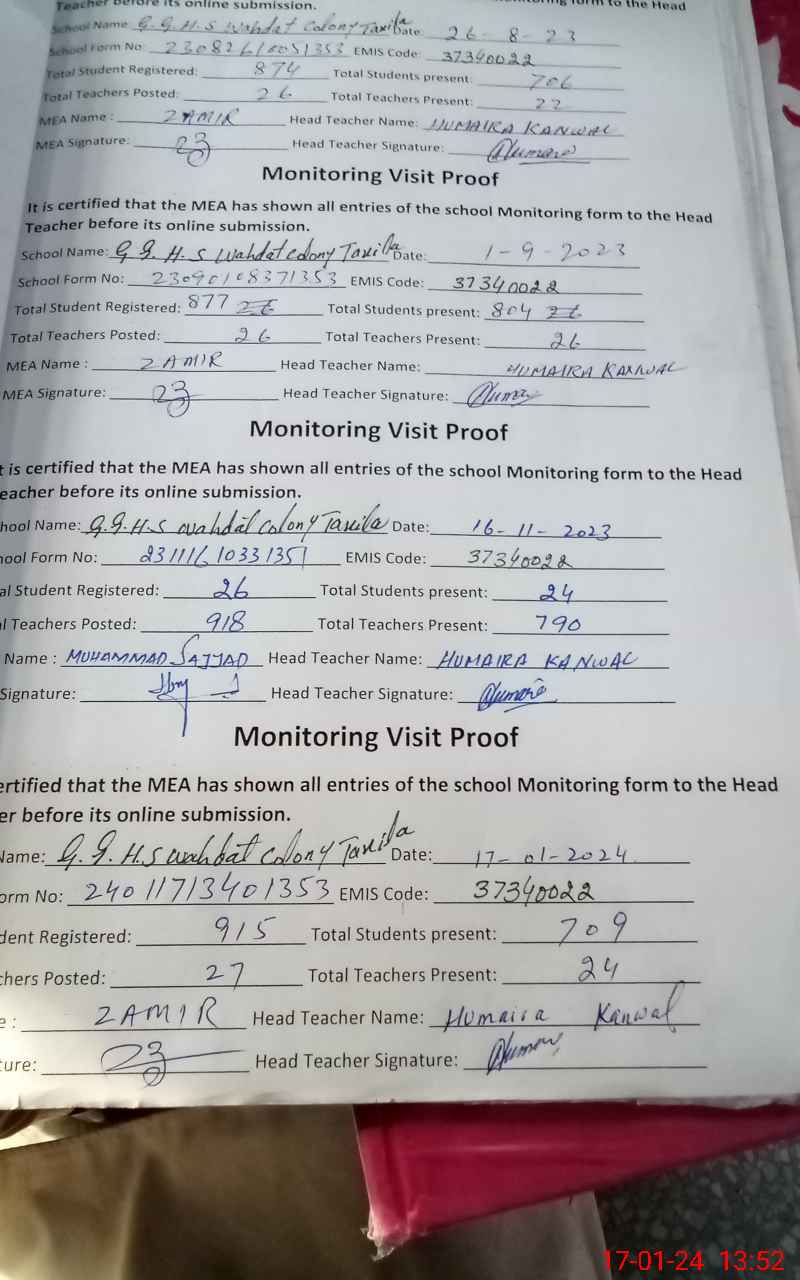 Teacher before its online submission.
to the Head
School Name G.G.H.S Wahdat Colony Taxila Date: 26-8-23
School Form No: 23082610051353 EMIS Code: 37340022
Total Student Registered: 874 Total Students present: 706
Total Teachers Posted: 26 Total Teachers Present: 22
MEA Name: ZAMIR Head Teacher Name: HUMAIRA KANWAL
MEA Signature: Head Teacher Signature: Humaira
Monitoring Visit Proof
It is certified that the MEA has shown all entries of the school Monitoring form to the Head
Teacher before its online submission.
School Name: G.G.H.S Wahdat Colony Taxila Date: 1-9-2023
School Form No: 23090108371353 EMIS Code: 37340022
Total Student Registered: 877 26 Total Students present: 804 26
Total Teachers Posted: 26 Total Teachers Present: 26
MEA Name: ZAMIR Head Teacher Name: HUMAIRA KANWAL
MEA Signature: Head Teacher Signature: Humaira
Monitoring Visit Proof
t is certified that the MEA has shown all entries of the school Monitoring form to the Head
eacher before its online submission.
hool Name: G.G.H.S wahdat Colony Taxila Date: 16-11-2023
ool Form No: 23111610331351 EMIS Code: 37340022
al Student Registered: 26 Total Students present: 24
l Teachers Posted: 918 Total Teachers Present: 790
Name: MUHAMMAD SAJJAD Head Teacher Name: HUMAIRA KANWAL
Signature: Head Teacher Signature: Humaira
Monitoring Visit Proof
ertified that the MEA has shown all entries of the school Monitoring form to the Head
er before its online submission.
Name: G.G.H.S wahdat Colony Taxila Date: 17-01-2024
orm No: 24011713401353 EMIS Code: 37340022
dent Registered: 915 Total Students present: 709
chers Posted: 27 Total Teachers Present: 24
e: ZAMIR Head Teacher Name: Humaira Kanwal
ture: Head Teacher Signature: Humaira
17-01-24 13:52